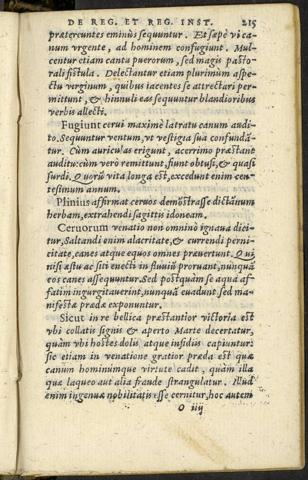 DE REG. ET REG. INST. 215
prætereuntes eminùs sequuntur. Et sæpè vi ca-
num vrgente, ad hominem confugiunt. Mul-
centur etiam cantu puerorum, sed magis pasto-
rali fistula. Delectantur etiam plurimùm aspe-
ctu virginum, quibus iacentes se attrectari per-
mittunt, & hinnuli eas sequuntur blandioribus
verbis allecti.
Fugiunt cerui maximè latratu canum audi-
to. Sequuntur ventum, vt vestigia sua confundã-
tur. Cùm auriculas erigunt, acerrimo præstant
auditu: cùm verò remittunt, fiunt obtusi, & quasi
surdi. Quorũ vita longa est, excedunt enim cen-
tesimum annum.
Plinius affirmat ceruos demõstrasse dictãnum
herbam, extrahendis sagittis idoneam.
Ceruorum venatio non omnino ignaua dici-
tur, Saltandi enim alacritate, & currendi perni-
citate, canes atque equos omnes præuertunt. Qui
nisi æstu ac siti enecti in fluuiũ proruant, nunquã
eos canes assequuntur. Sed postquàm se aqua af-
fatim ingurgitauerint, nunquã euadunt sed ma-
nifestæ prædæ exponuntur.
Sicut in re bellica præstantior victoria est
vbi collatis signis & aperto Marte decertatur,
quàm vbi hostes dolis atque insidiis capiuntur:
sic etiam in venatione gratior præda est quæ
canum hominúmque virtute cadit, quàm illa
quæ laqueo aut alia fraude strangulatur. Illud
enim ingenuæ nobilitatis esse cernitur, hoc autem
O iiij